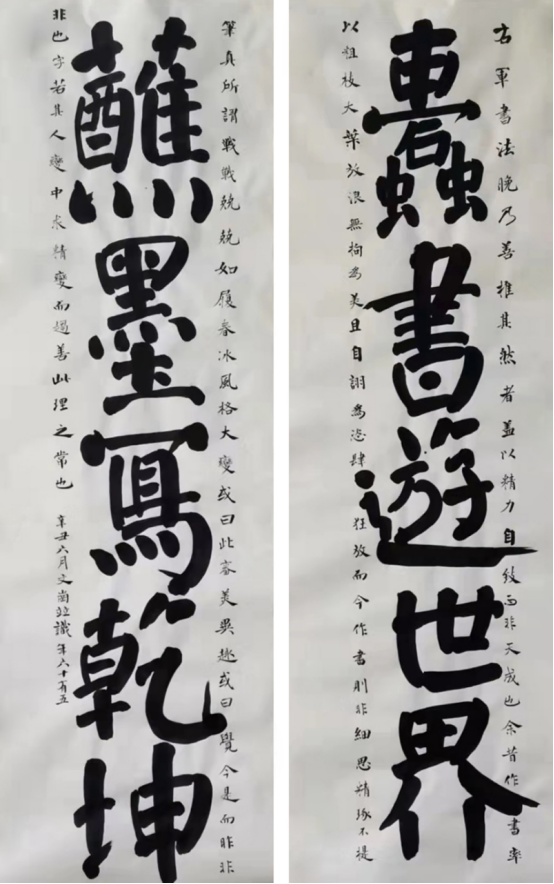 右軍書法晚乃善推其然者蓋以精力自致而非天成也余昔作書率
蠹書遊世界
以粗枝大葉放浪無拘為美且自詡為恣肆狂放而今作書則非細思精琢不提
筆真所謂戰戰兢兢如履春冰風格大變或曰此審美異趣或曰覺今是而昨非
蘸墨寫乾坤
非也字若其人變中求精變而過善此理之常也 辛丑六月文並識年六十有五